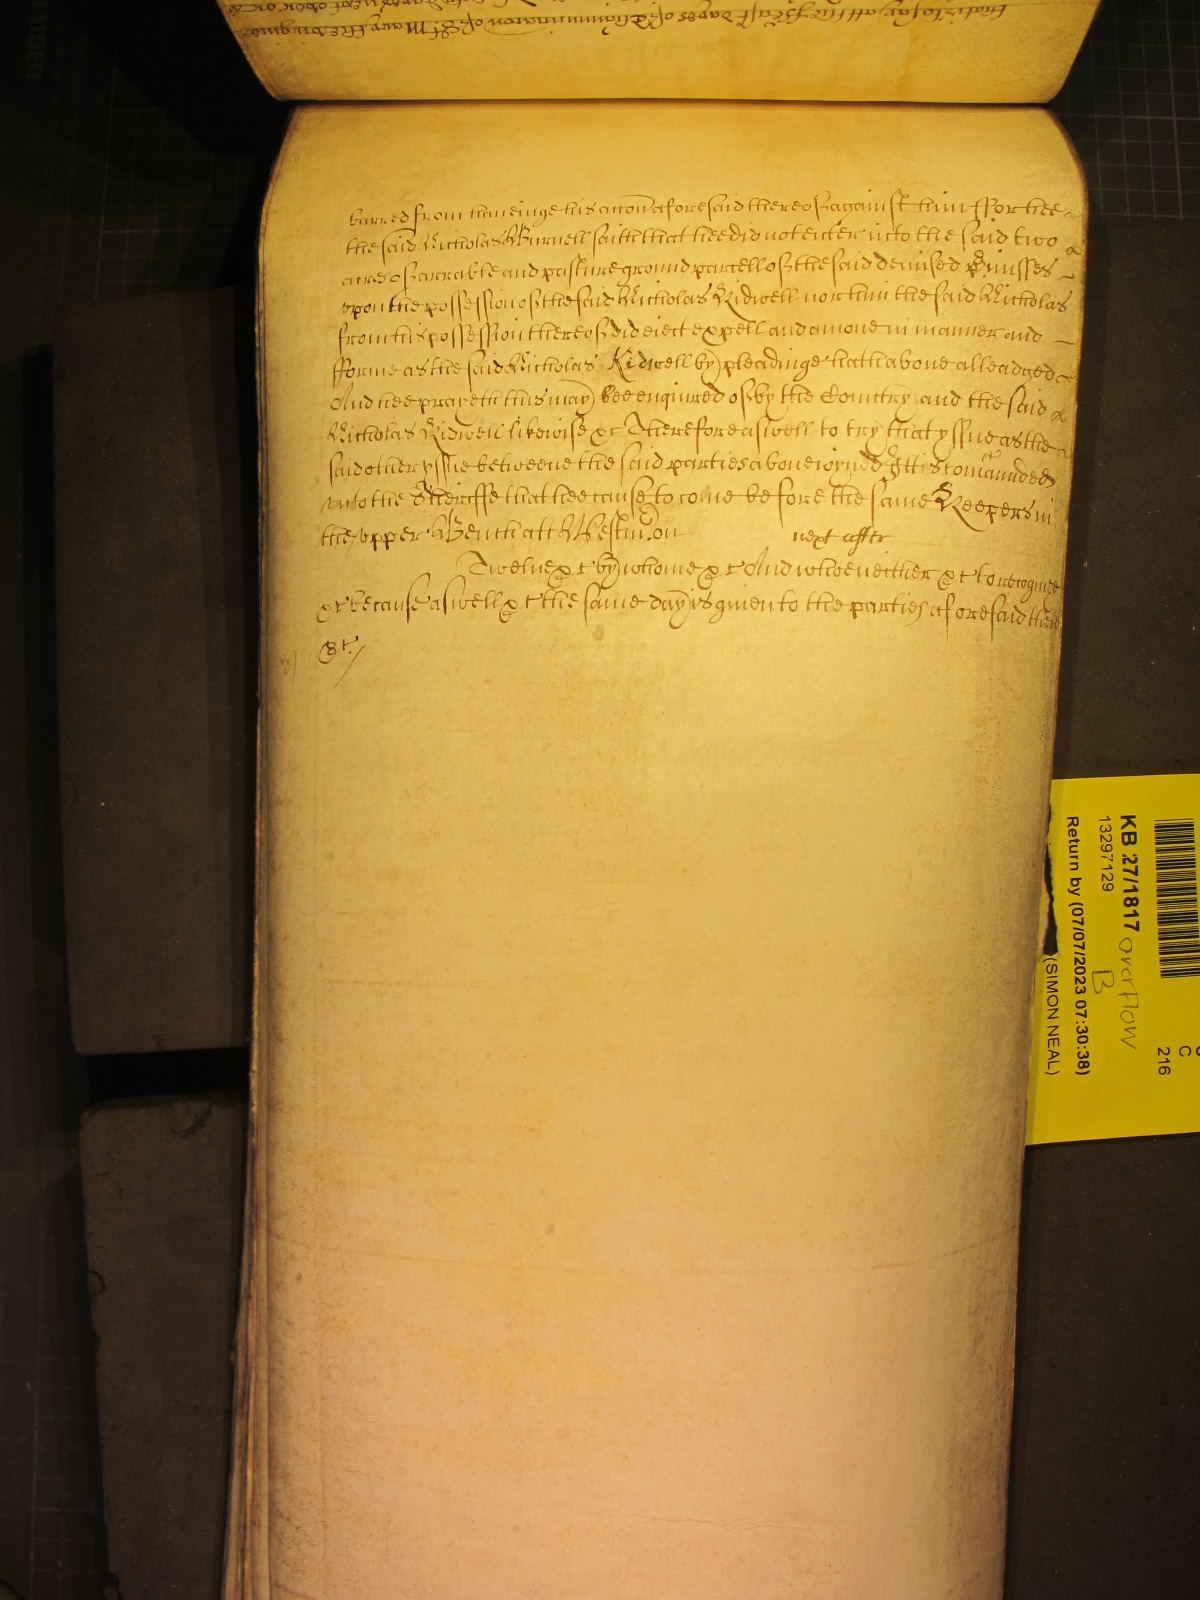 barred from haueinge his accon aforesaid thereof against him ffor hee
the said Nicholas Burnell saith that hee did not enter into the said two
acres of arrable and pasture ground parcell of the said demised Pmisses
vpon the possession of the said Nicholas Kidwell nor him the said Nicholas
from his possession thereof did eiect expell and amoue in manner and
fforme as the said Nicholas Kidwell by pleadinge hath aboue alleadged
And hee prayeth this may bee enquired of by the Countrry and the said
Nicholas Kidwell likewise &c Therefore aswell to try that yssue as the
said other yssue betweene the said parties aboue ioyned Itt is comaunded
vnto the Sheriffe that hee cause to come before the same Keepers in
the vpper Bench att Westm on next after
Twelue &c by whome &c And who neither &c to recognize
&c because aswell &c the same day is giuen to the parties aforesaid there
&c
KB 27/1817
13297129
Return by (07/07/2023 07:30:38)
(SIMON NEAL)
overflow
B
C
216